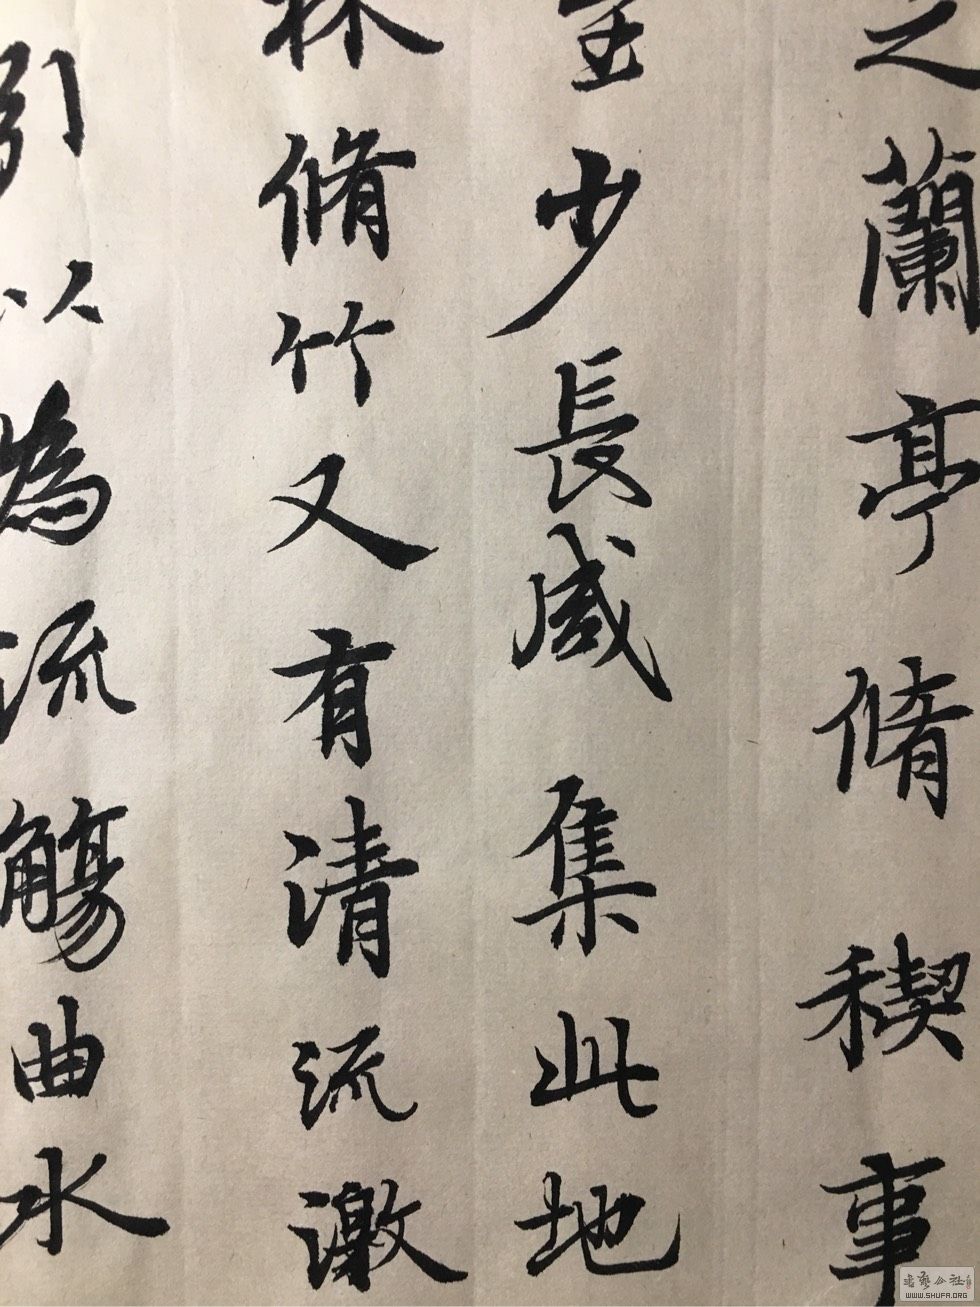 之蘭亭脩稧事
至少長咸集此地
林脩竹又有清流激
引以為流觴曲水
WWW.SHUFA.ORG